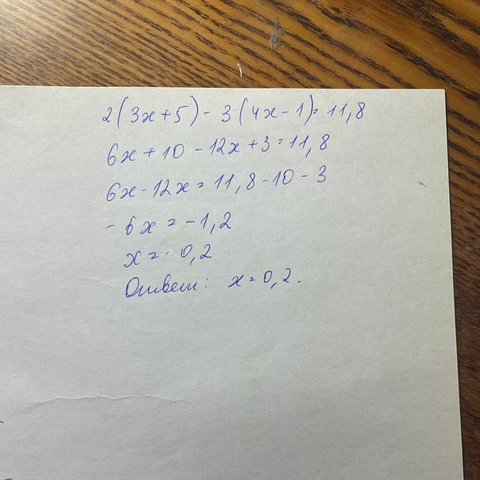 2(3x+5) - 3(4x-1) = 11,8
6x + 10 - 12x + 3 = 11,8
6x - 12x = 11,8 - 10 - 3
- 6x = -1,2
x = 0,2
Ответ: x = 0,2.